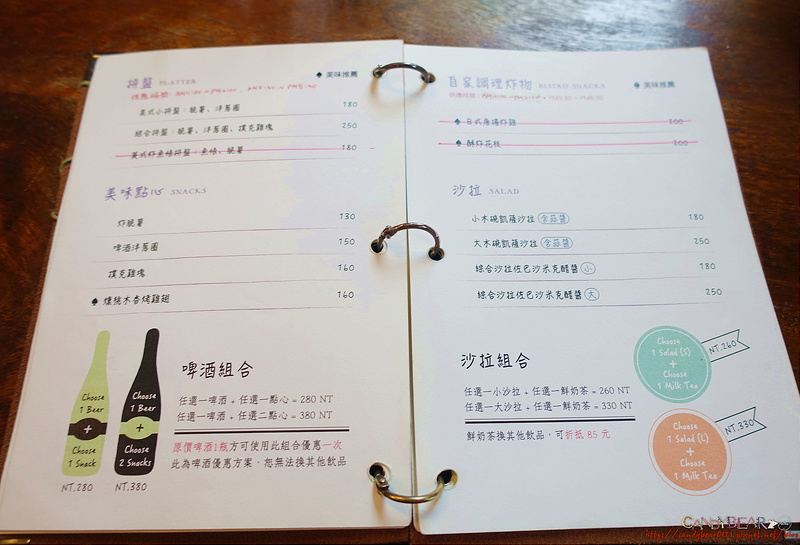 拼盤 PLATTER
♠ 美味推薦
美式小拼盤：脆薯、洋蔥圈 180
綜合拼盤：脆薯、洋蔥圈、撲克雞塊 250
美式炸魚條拼盤：魚條、脆薯 180
美味點心 SNACKS
炸脆薯 130
啤酒洋蔥圈 150
撲克雞塊 160
♠ 煙燻木香烤雞翅 160
Choose
1 Beer
+
Choose
1 Snack
NT.280
Choose
1 Beer
+
Choose
2 Snacks
NT.380
啤酒組合
任選一啤酒 + 任選一點心 = 280 NT
任選一啤酒 + 任選二點心 = 380 NT
原價啤酒1瓶方可使用此組合優惠一次
此為啤酒優惠方案，恕無法換其他飲品
自家調理炸物 BISTRO SNACKS
♠ 美味推薦
♠ 日式唐揚炸雞 200
♠ 酥炸花枝 200
沙拉 SALAD
小木碗凱薩沙拉 含蒜醬 180
大木碗凱薩沙拉 含蒜醬 250
綜合沙拉佐巴沙米克醋醬 小 180
綜合沙拉佐巴沙米克醋醬 大 250
沙拉組合
任選一小沙拉 + 任選一鮮奶茶 = 260 NT
任選一大沙拉 + 任選一鮮奶茶 = 330 NT
鮮奶茶換其他飲品，可折抵 85 元
Choose
1 Salad (S)
+
Choose
1 Milk Tea
NT.260
Choose
1 Salad (L)
+
Choose
1 Milk Tea
NT.330
CANDYBEAR